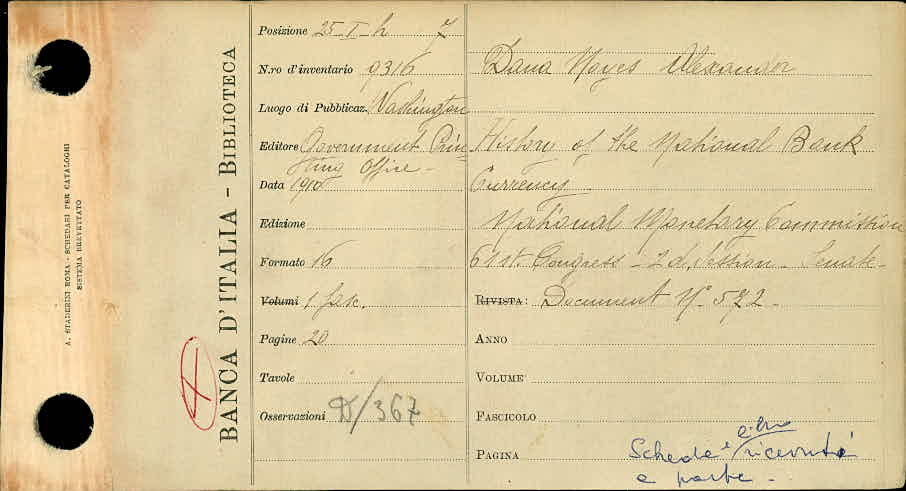 A. STADERINI ROMA - SCHEDARI PER CATALOGHI
SISTEMA BREVETTATO
BANCA D'ITALIA - BIBLIOTECA
Posizione 25-I-h 7
N.ro d'inventario 9316
Luogo di Pubblicaz. Washington
Editore Government Prin=
ting Office -
Data 1910
Edizione
Formato 16
Volumi 1 fasc.
Pagine 20
Tavole
Osservazioni D/367
Dana Noyes Alexander
History of the National Bank
Currency
National Monetary Commission
61st Congress - 2d. Session - Senate -
RIVISTA: Document N° 572 -
ANNO
VOLUME
FASCICOLO
PAGINA
Schede
ricevute
a parte -